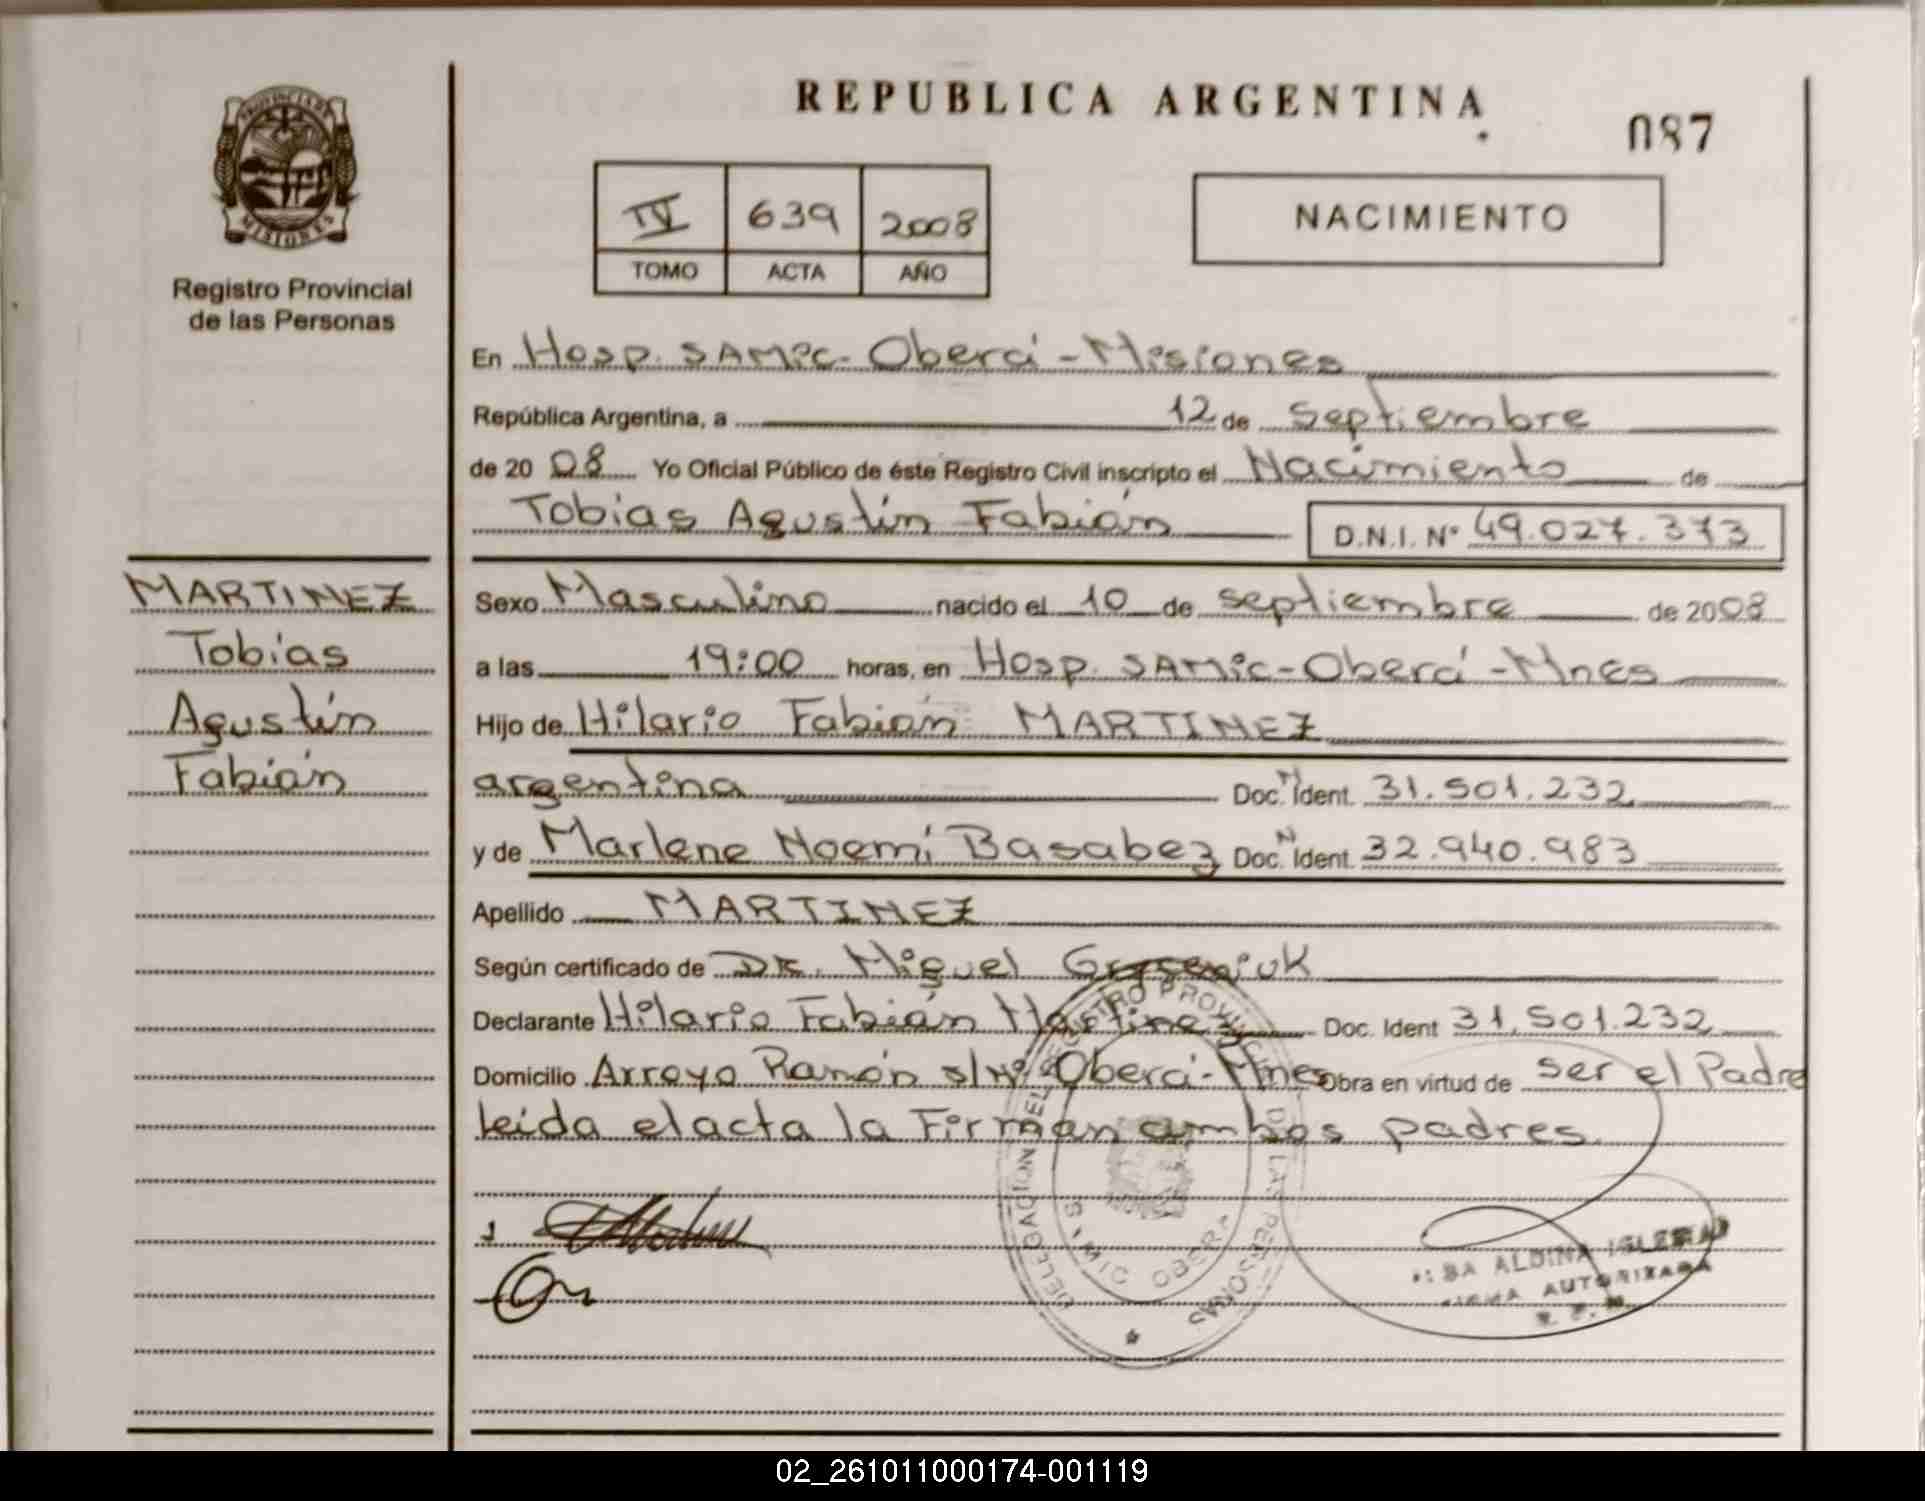 PROVINCIA DE
MISIONES
Registro Provincial
de las Personas
REPUBLICA ARGENTINA
087
IV 639 2008
TOMO ACTA AÑO
NACIMIENTO
En Hosp. SAMic - Oberá - Misiones
República Argentina, a 12 de Septiembre
de 20 08 Yo Oficial Público de éste Registro Civil inscripto el Nacimiento de
Tobias Agustín Fabián D.N.I. Nº 49.027.373
MARTINEZ
Tobias
Agustín
Fabián
Sexo Masculino nacido el 10 de septiembre de 2008
a las 19:00 horas, en Hosp. SAMic - Oberá - Mnes
Hijo de Hilario Fabián MARTINEZ
argentina Doc. N Ident. 31.501.232
y de Marlene Noemí Basabez Doc. N Ident. 32.940.983
Apellido MARTINEZ
Según certificado de DR. Miguel
Declarante Hilario Fabián Martinez Doc. Ident 31.501.232
Domicilio Arroyo Ramón s/Nº Oberá - Mnes Obra en virtud de ser el Padre
leida el acta la Firman ambos padres
DELEGACION DEL REGISTRO PROVINCIAL DE LAS PERSONAS
SAMIC OBERA
ALDINA IGLESIAS
FIRMA AUTORIZADA
02_261011000174-001119